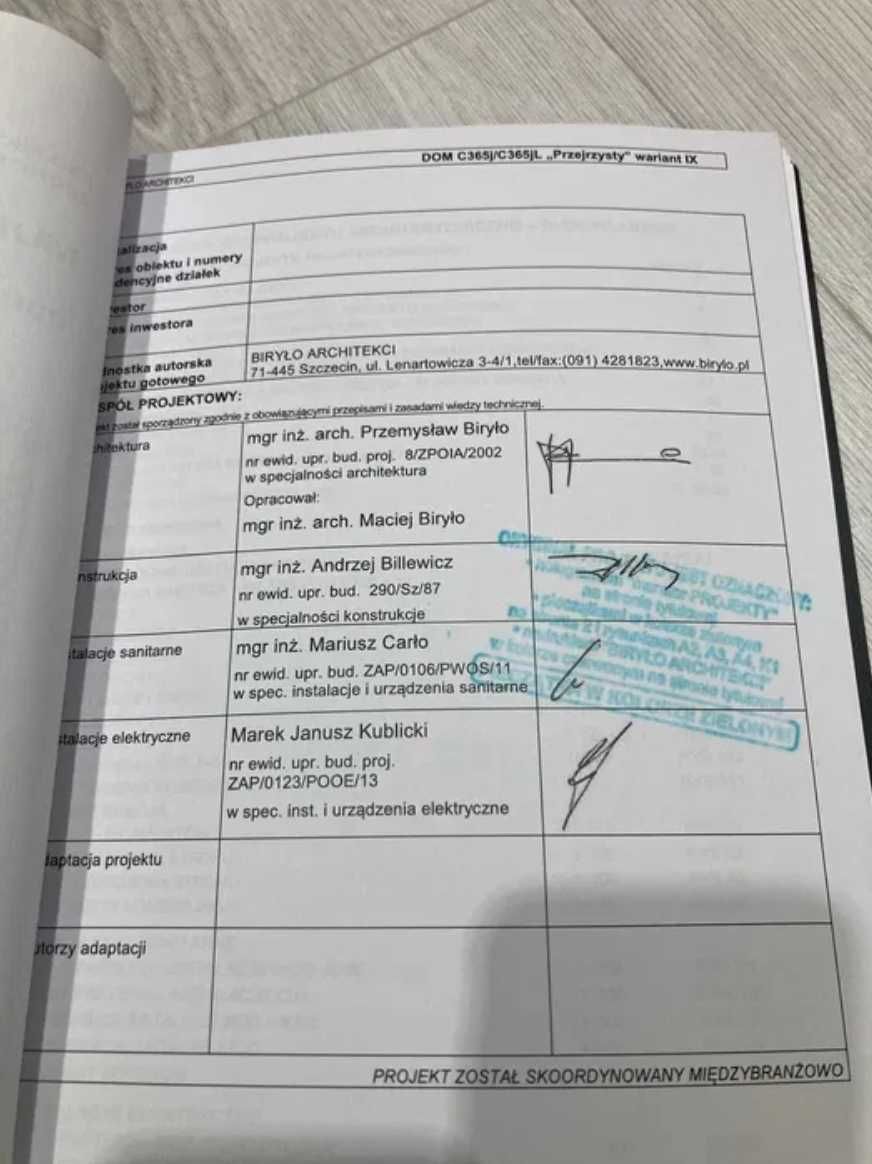 DOM C365j/C365jL „Przejrzysty” wariant IX
ARCHITEKCI
alizacja
res obiektu i numery
dencyjne działek
estor
res inwestora
dnostka autorska
jektu gotowego
BIRYŁO ARCHITEKCI
71-445 Szczecin, ul. Lenartowicza 3-4/1,tel/fax:(091) 4281823,www.birylo.pl
SPÓŁ PROJEKTOWY:
ekt został sporządzony zgodnie z obowiązującymi przepisami i zasadami wiedzy technicznej.
chitektura
mgr inż. arch. Przemysław Biryło
nr ewid. upr. bud. proj. 8/ZPOIA/2002
w specjalności architektura
Opracował:
mgr inż. arch. Maciej Biryło
nstrukcja
mgr inż. Andrzej Billewicz
nr ewid. upr. bud. 290/Sz/87
w specjalności konstrukcje
stalacje sanitarne
mgr inż. Mariusz Carło
nr ewid. upr. bud. ZAP/0106/PWOS/11
w spec. instalacje i urządzenia sanitarne
stalacje elektryczne
Marek Janusz Kublicki
nr ewid. upr. bud. proj.
ZAP/0123/POOE/13
w spec. inst. i urządzenia elektryczne
JEST OZNACZONY:
PROJEKTY"
na stronie tytułowej
* pieczątkami w kolorze zielonym
na A2, A3, A4, K1
"BIRYŁO ARCHITEKCI"
w kolorze na stronie tytułowej
W KOLORZE ZIELONYM
daptacja projektu
utorzy adaptacji
PROJEKT ZOSTAŁ SKOORDYNOWANY MIĘDZYBRANŻOWO